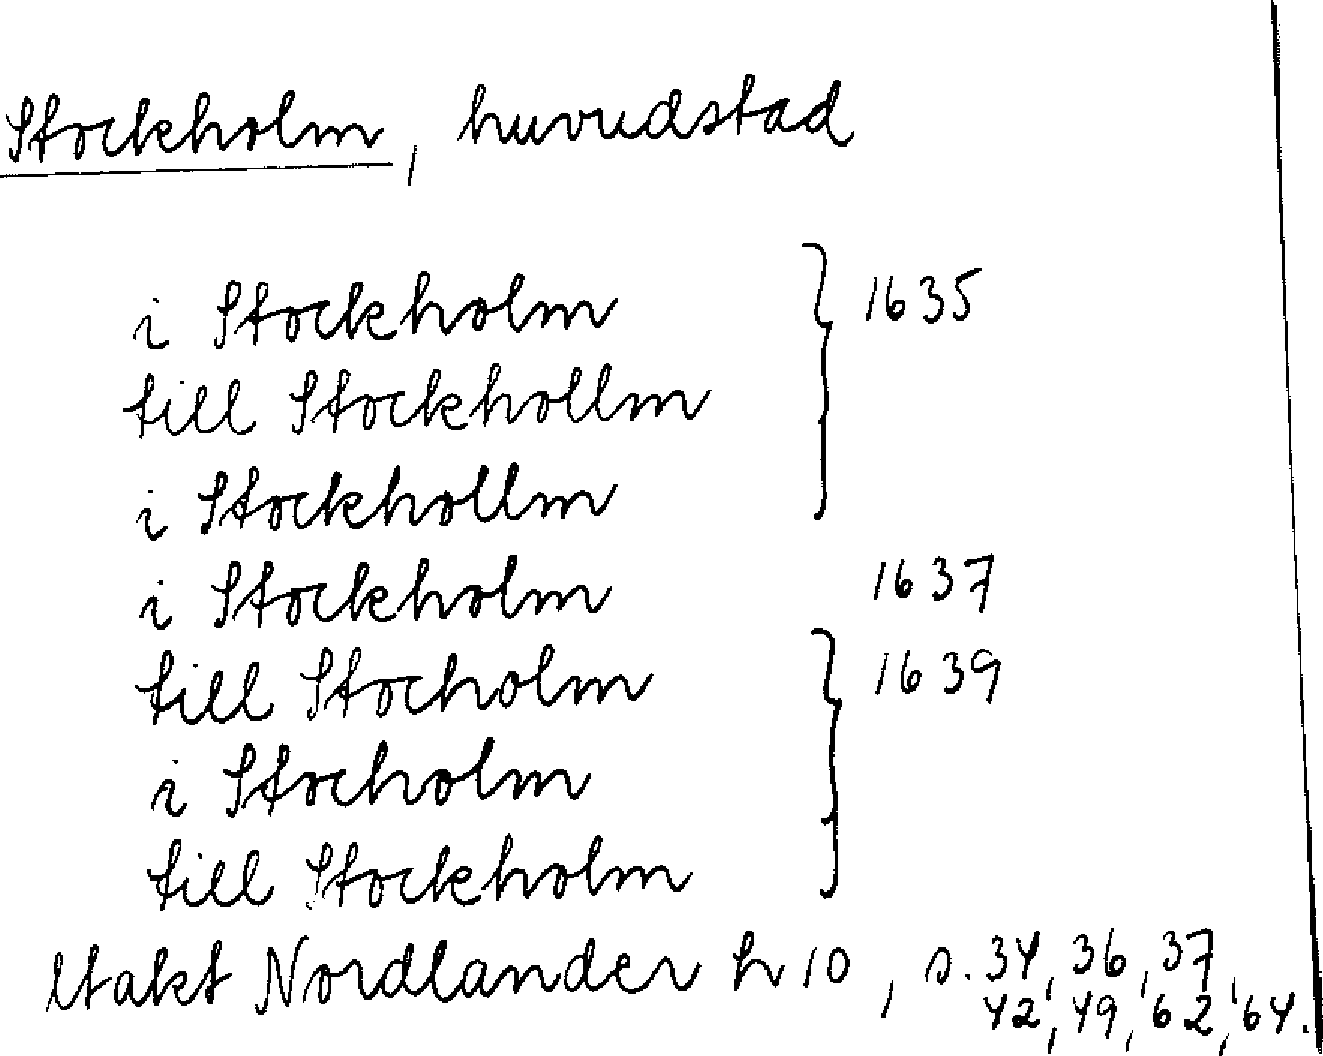 Stockholm, huvudstad
i Stockholm } 1635
till Stockhollm
i Stockhollm
i Stockholm 1637
till Stocholm } 1639
i Stocholm
till Stockholm
Utakt Nordlander h 10, s. 34, 36, 37,
42, 49, 62, 64.